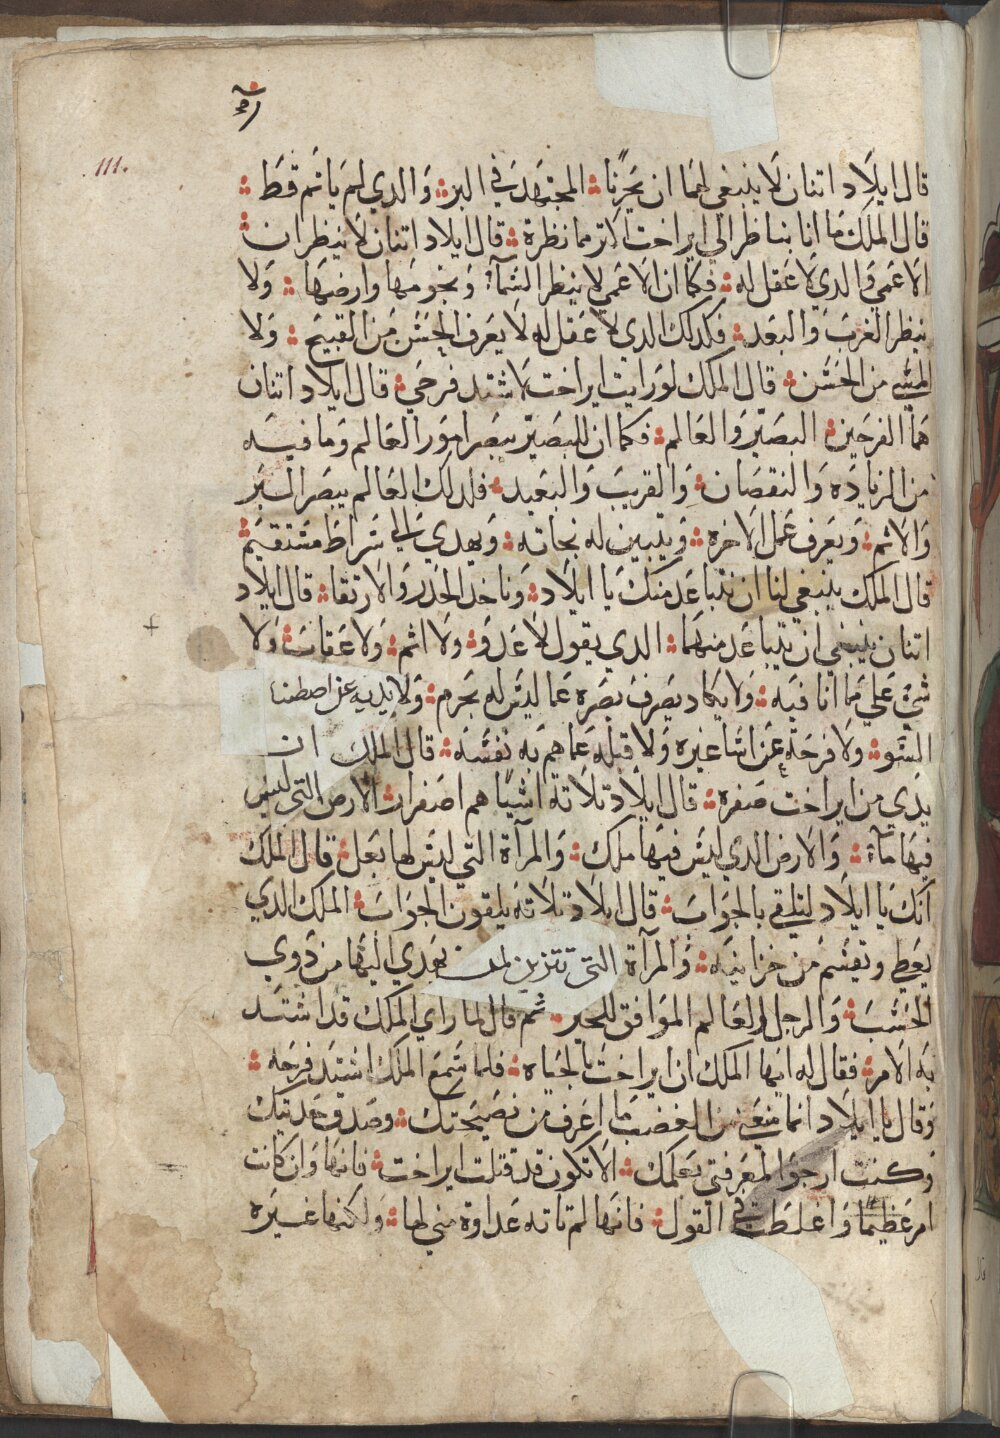 111.
قال ايلاد اتنان لا ينبغي لهما ان يحزنا المجتهد في البر والدي لم ياتم قط
قال الملك ما انا بناظر الي ايراخت اكتر مما نظرة قال ايلاد اتنان لا ينظران
الاعمي والدي لا عقل له فكما ان الاعمي لا ينظر السماء ونجومها وارضها ولا
ينظر القرب والبعد فكدلك الدي لا عقل له لا يعرف الحسن من القبيح ولا
المسي من الحسن قال الملك لو رايت ايراخت لاشتد فرحي قال ايلاد اتنان
هما الفرحين البصير والعالم فكما ان البصير يبصر امور العالم وما فيه
من الزياده والنقصان والقريب والبعيد فكدلك العالم يبصر البر
والاتم ويعرف عمل الاخره ويتبين له نجاته ويهدي الي سراط مستقيم
قال الملك ينبغي لنا ان نتباعد منك يا ايلاد وناخد الحدر والارتقا قال ايلاد
اتنان ينبغي ان يتباعد منهما الدي يقول لا عدو ولا اثم ولا عقاب ولا
شي علي مما انا فيه ولا يكاد يصرف بصره عما ليس له بحرم ولا يديه عن اصطنا
السو ولا فرحه عن انسا غيره ولا قبله عما هم به نفسه قال الملك ان
يدي من ايراخت صفره قال ايلاد تلاتة اشيا هم اصفرار الارض التي ليس
فيها ماء والارض الدي ليس فيها ملك والمرآة التي ليس لها بعل قال الملك
انك يا ايلاد لتلقي بالجواب قال ايلاد تلاته يلقون الجواب الملك الدي
يعطي ويقسم من خزاينه والمرآة التي تتزين لمن يهدي اليها من دوي
الحسب والرجل العالم الموافق للخير ثم قال لما راي الملك قد اشتد
به الامر فقال له ايها الملك ان ايراخت بالحياه فلما سمع الملك اشتد فرحه
وقال يا ايلاد انما منعني من الغضب ما اعرف من نصيحتك وصدق حديتك
وكنت ارجو لمعرفتي بعلمك الا تكون قد قتلت ايراخت فانها وان كانت
امر عظيما واغلظت في القول فانها لم تاته عداوة مني لها ولكنها غيره